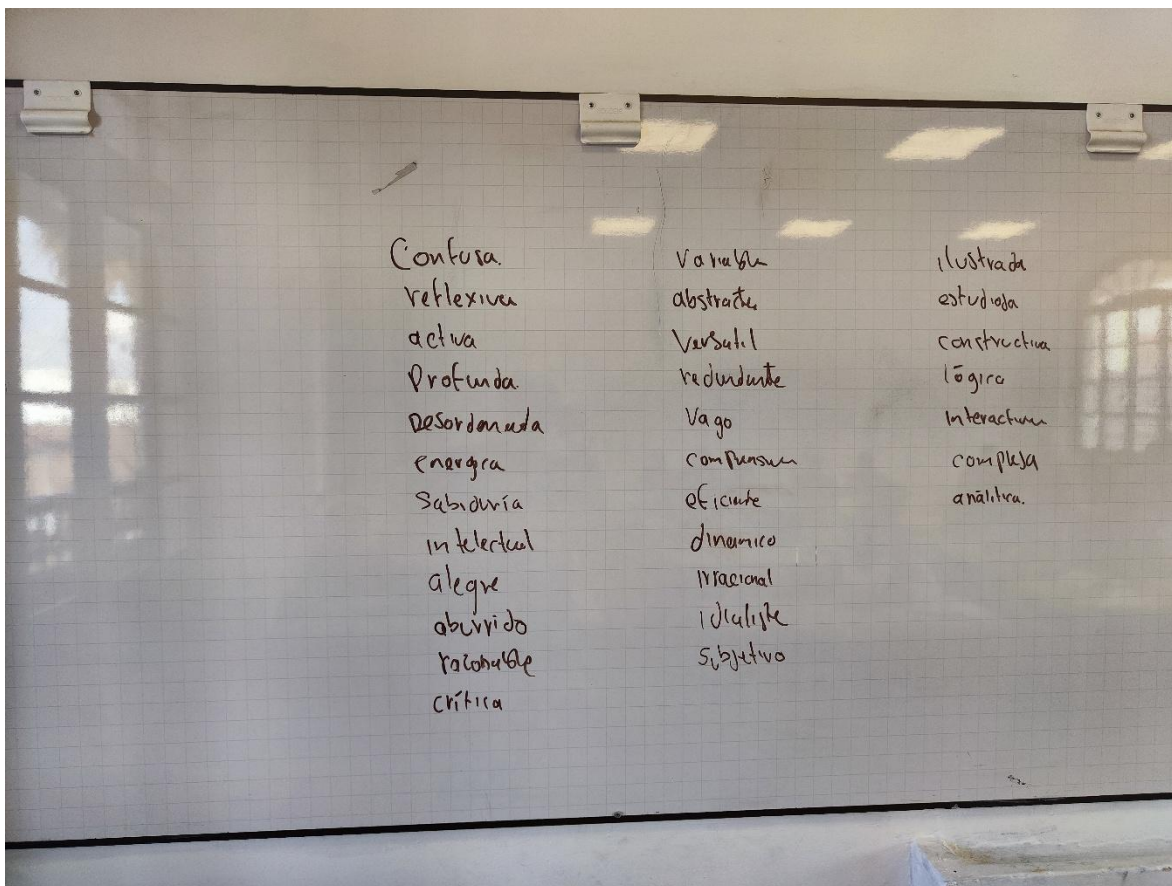 Confusa.
reflexiva
activa
Profunda.
Desordenada
energica
Sabiduría
intelectual
alegre
aburrido
razonable
crítica
Variable
abstracta
Versatil
redundante
Vago
eficiente
dinamico
irracional
idealista
subjetivo
ilustrada
estudiosa
constructiva
lógica
Interactiva
compleja
análitica.